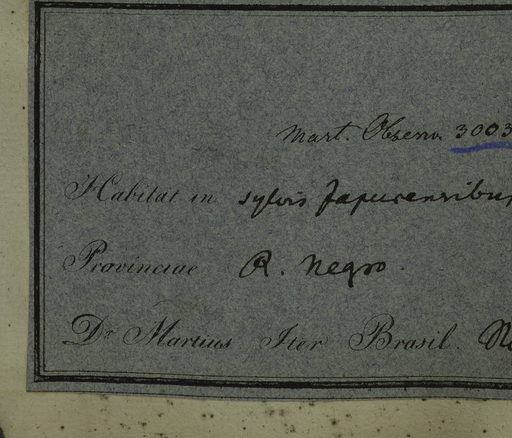 Mart. Observ. 3003
Habitat in sylvis Japurensibus
Provinciae R. Negro.
Dr. Martius Iter Brasil.